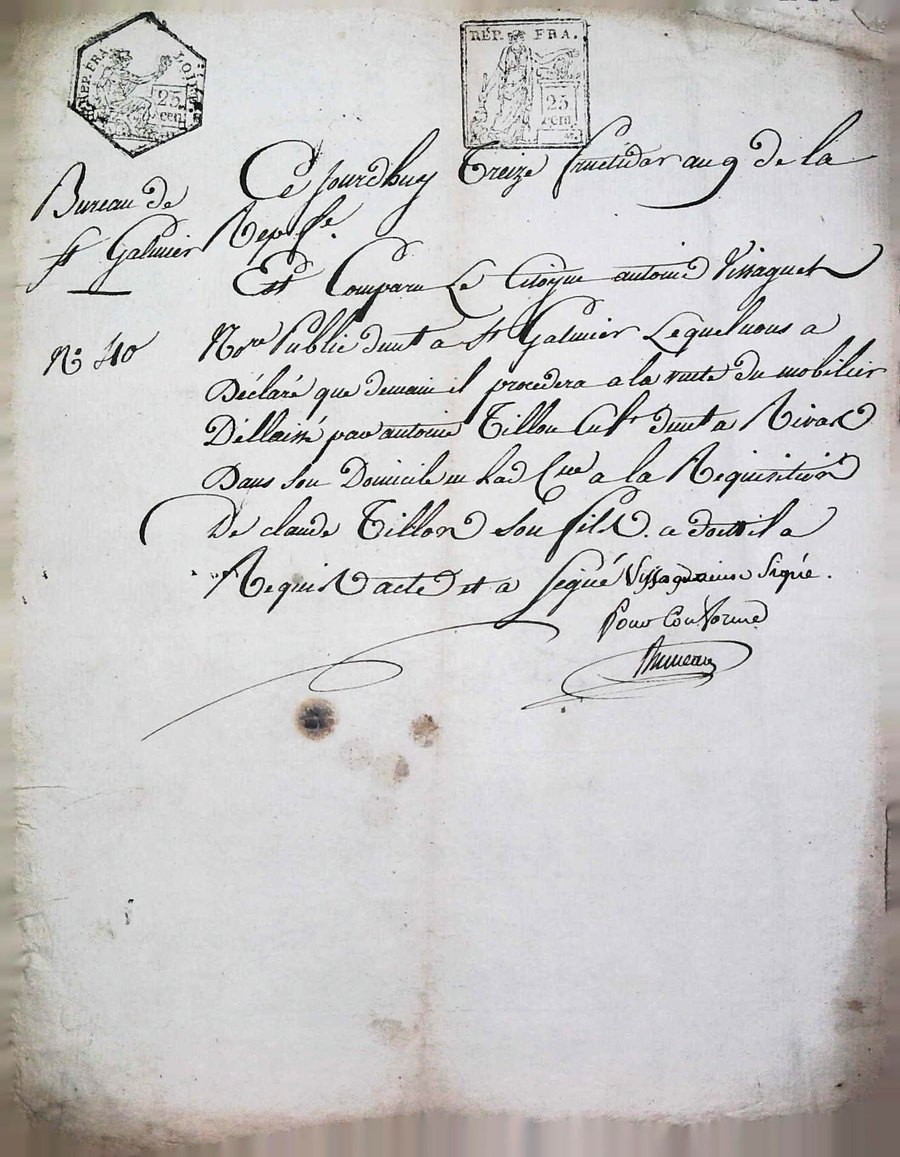 REP. FRA. LOIRE
25
cen
RÉP. FRA.
25
cent.
Bureau de
St Galmier
N° 40
Ce jourdhuy Treize fructidor an 9 de la
Rep. fse.
Est Comparu Le Citoyen antoine Vissaguet
Nore Public dmt a St Galmier Lequel nous a
Déclaré que demain il procedera a la vente du mobilier
Dellaissé par antoine Tillon Cultr dmt a Rivas
Dans son Domicile en lad Cne a la Requisition
De claude Tillon son fils. a dont il a
Requis acte et a signé Vissaguet Signé.
Pour Conforme